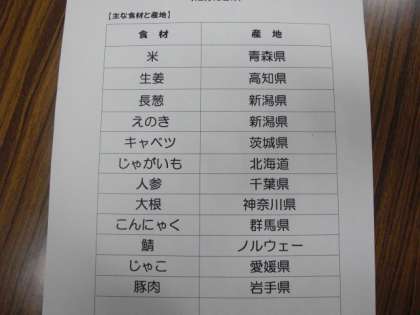 【主な食材と産地】
食 材 産 地
米 青森県
生姜 高知県
長葱 新潟県
えのき 新潟県
キャベツ 茨城県
じゃがいも 北海道
人参 千葉県
大根 神奈川県
こんにゃく 群馬県
鯖 ノルウェー
じゃこ 愛媛県
豚肉 岩手県